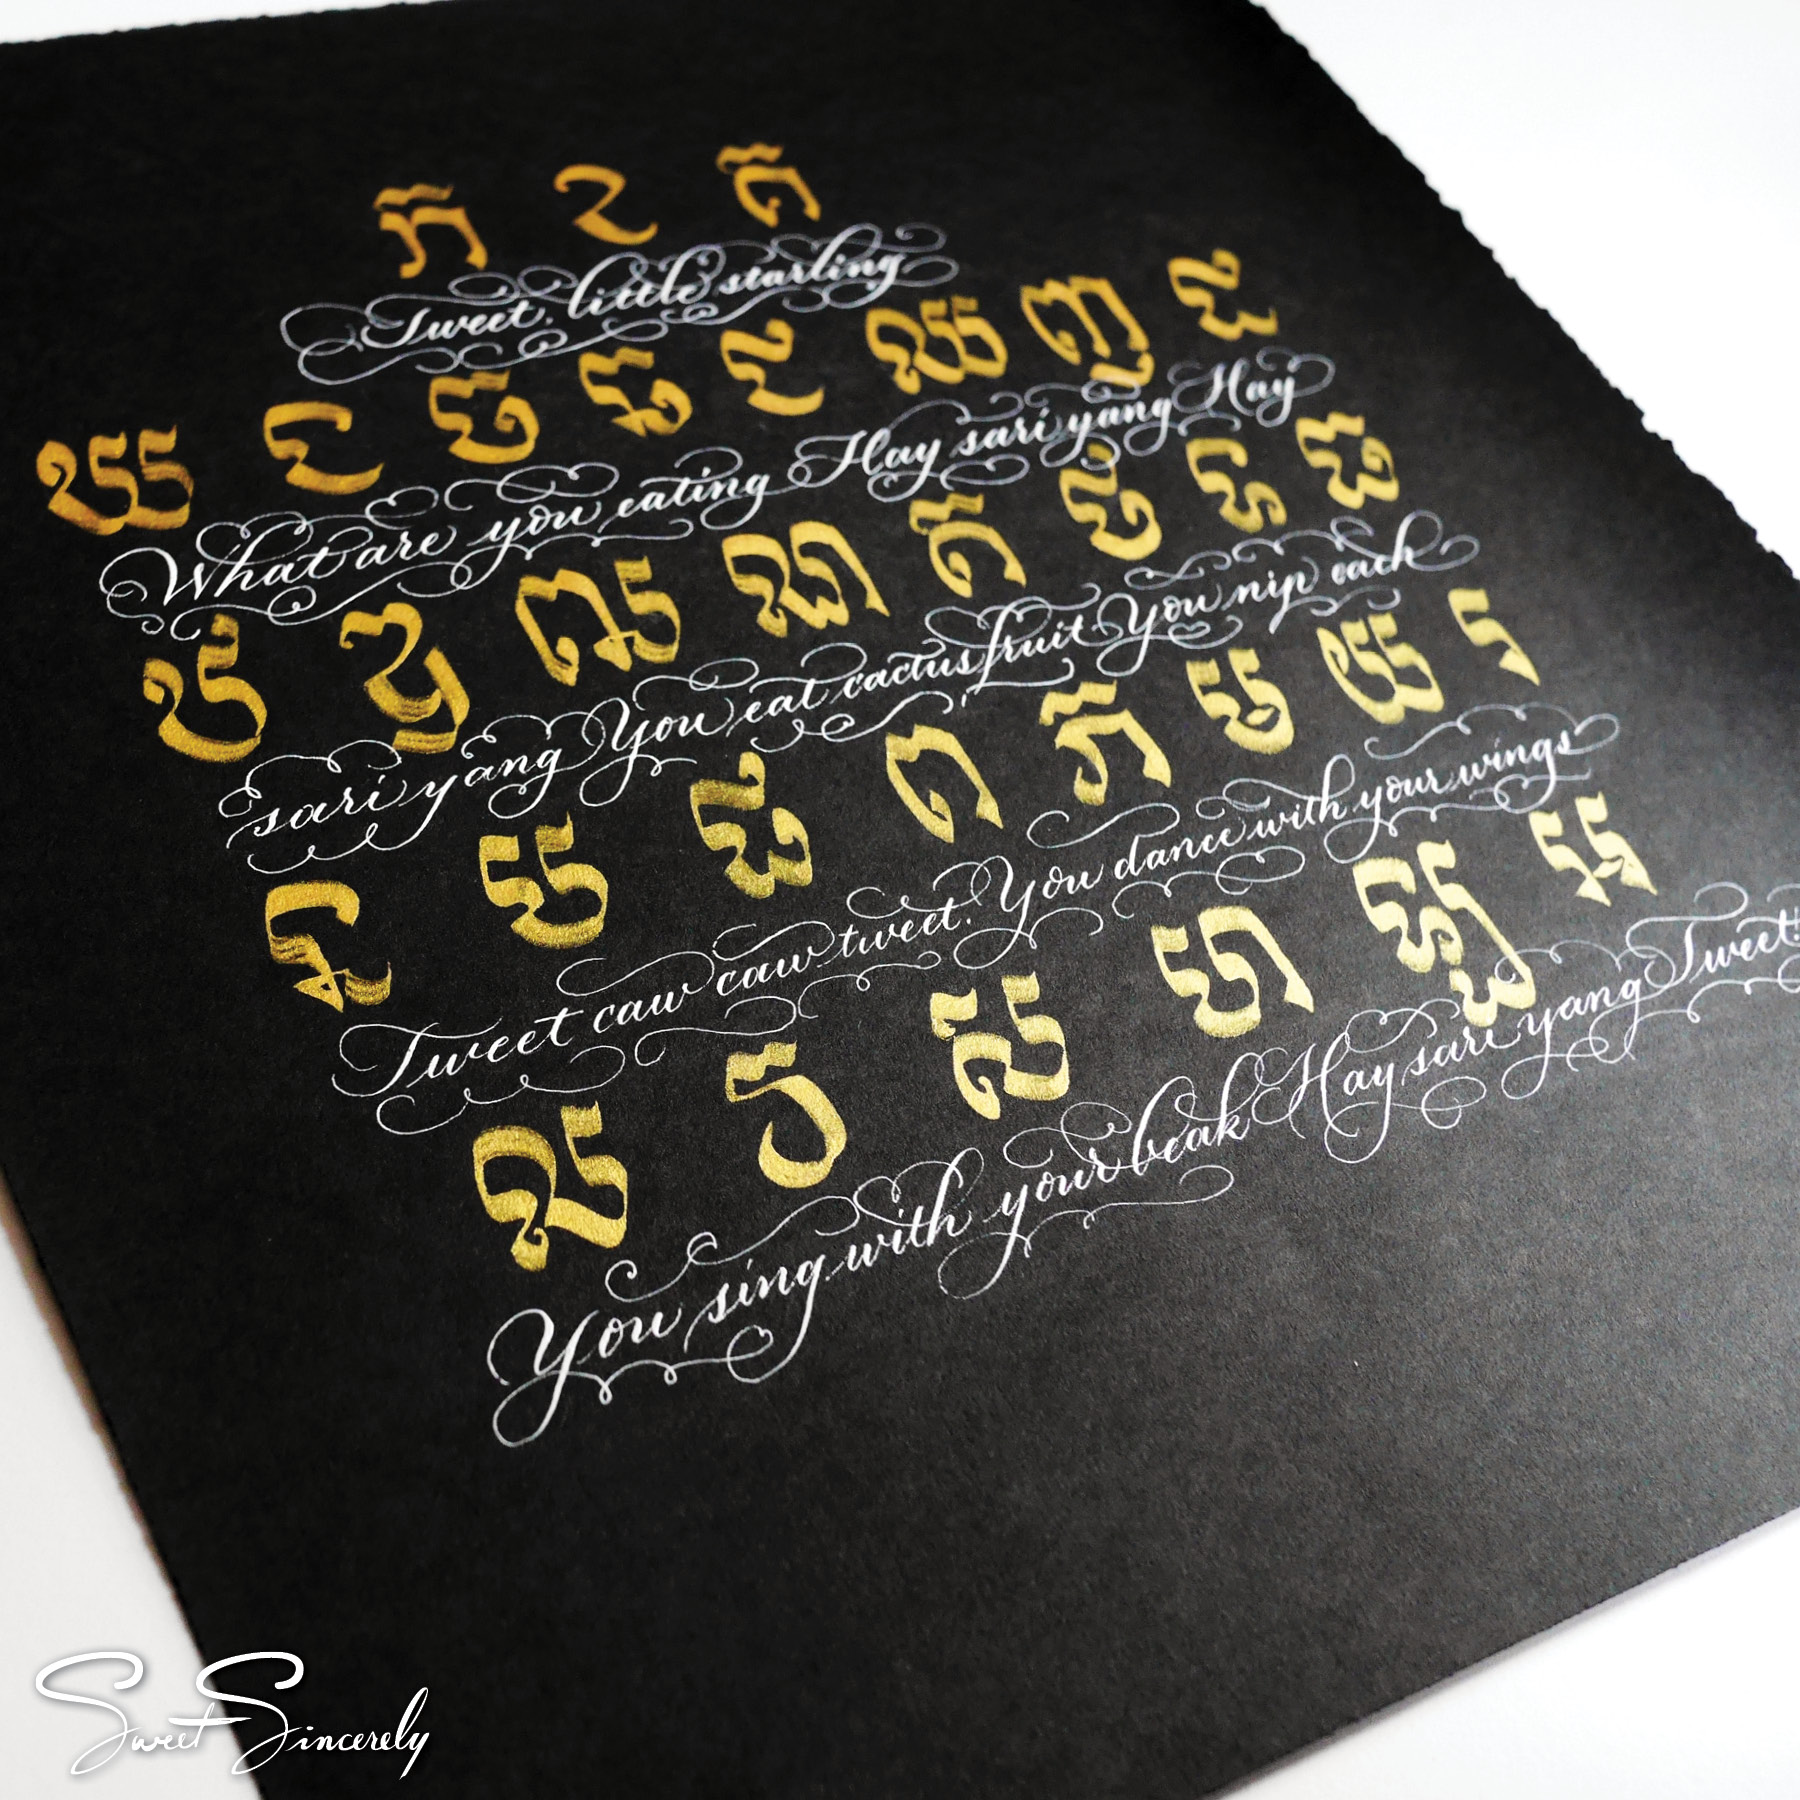 ក ខ គ
Tweet, little starling
ឃ ង ច ឆ ជ ឈ ញ ដ
What are you eating Hay sari yang Hay
ឋ ឌ ឍ ណ ត ថ ទ ធ
sari yang You eat cactus fruit You nip each
ន ប ផ ព ភ ម យ រ
Tweet caw caw tweet. You dance with your wings
ល វ ស ហ ឡ អ
You sing with your beak Hay sari yang Tweet!
Sweet Sincerely